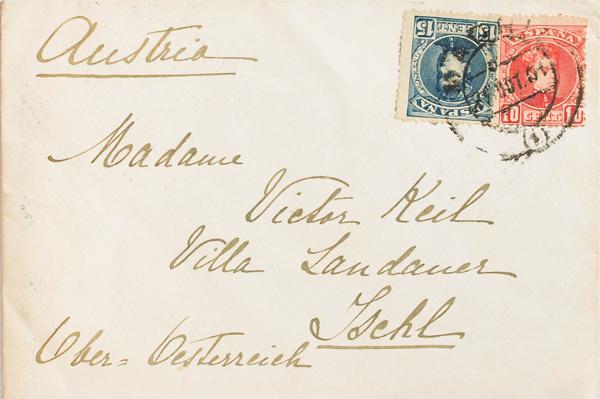 Austria
15 CENT. 15
ESPAÑA
ESPAÑA
10 CENT. 10
Madame
Victor Keil
Villa Landauer
Ischl
Ober=Oesterreich